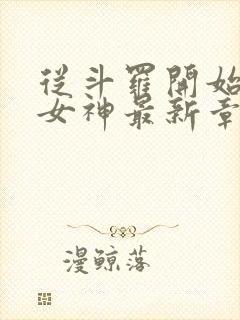 從斗羅開始
女神最新章
漫鯨落